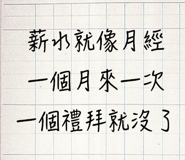 薪水就像月經
一個月來一次
一個禮拜就沒了